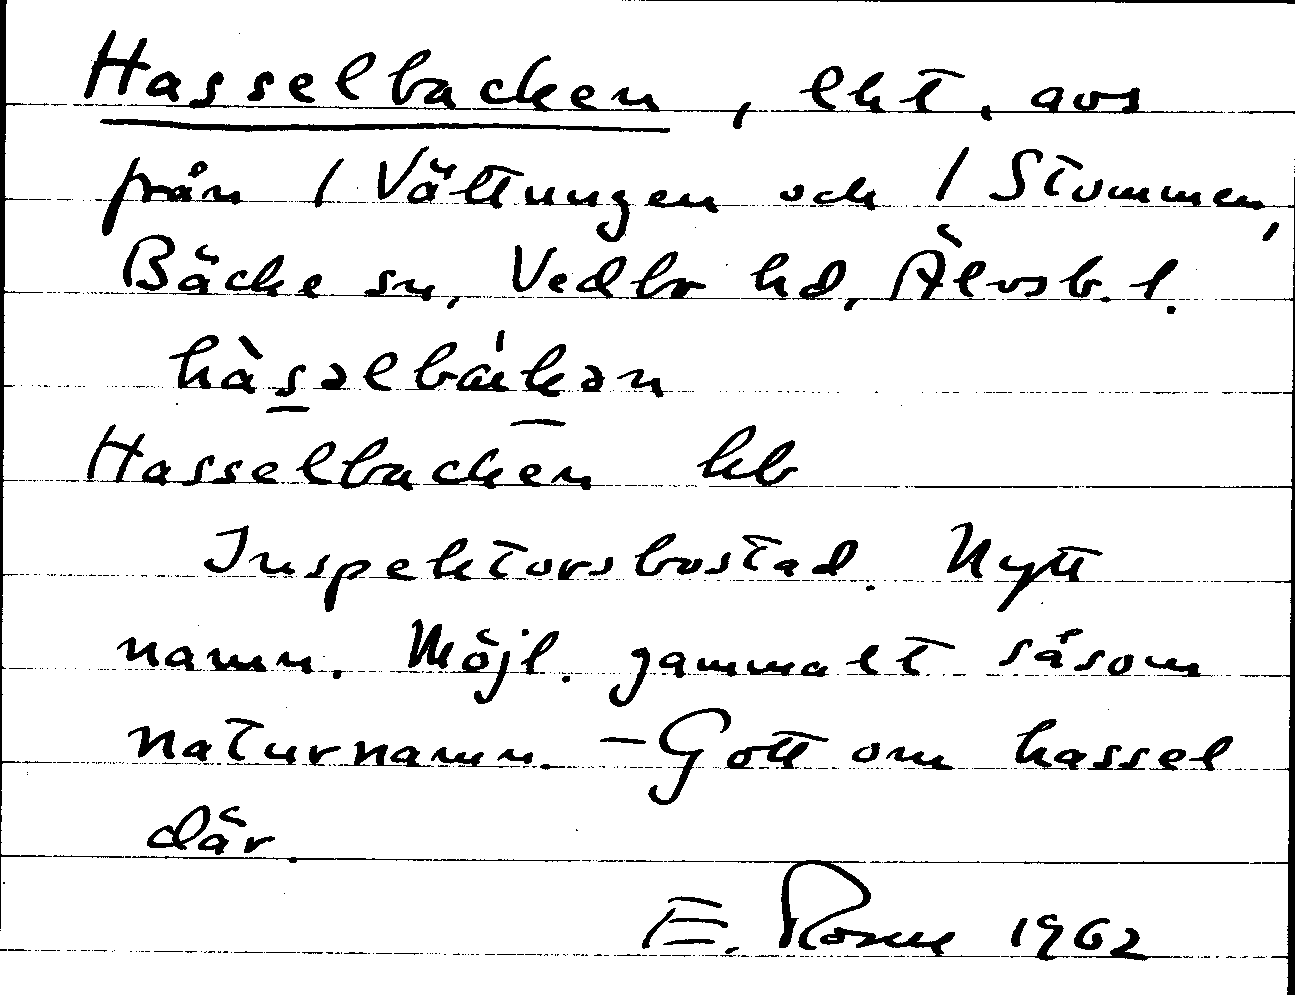 Hasselbacken, lht, avs
från 1 Vättungen och 1 Stommen,
Bäcke sn, Vedbo hd, Älvsb. l.
hàsəlbákən
Hasselbacken kb
Inspektorsbostad. Nytt
namn. Möjl. gammalt såsom
naturnamn. – Gott om hassel
där.
E. Rosell 1962